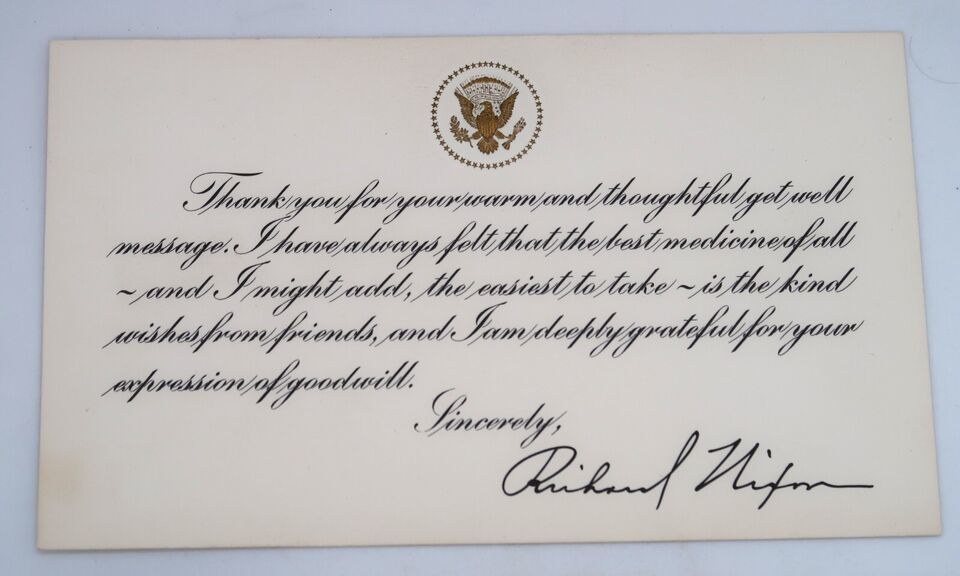 Thank you for your warm and thoughtful get well
message. I have always felt that the best medicine of all
~ and I might add, the easiest to take ~ is the kind
wishes from friends, and I am deeply grateful for your
expression of goodwill.
Sincerely,
Richard Nixon